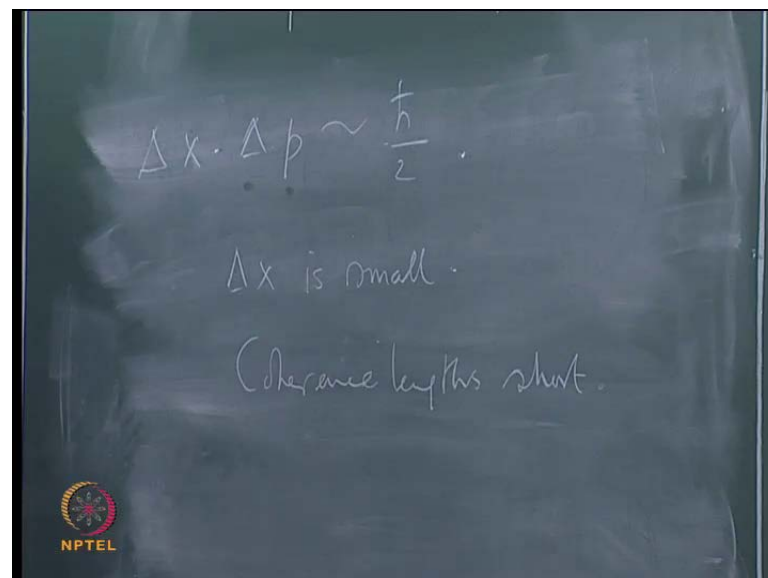 Δx · Δp ~ ħ/2 .
Δx is small.
Coherence lengths short.
NPTEL